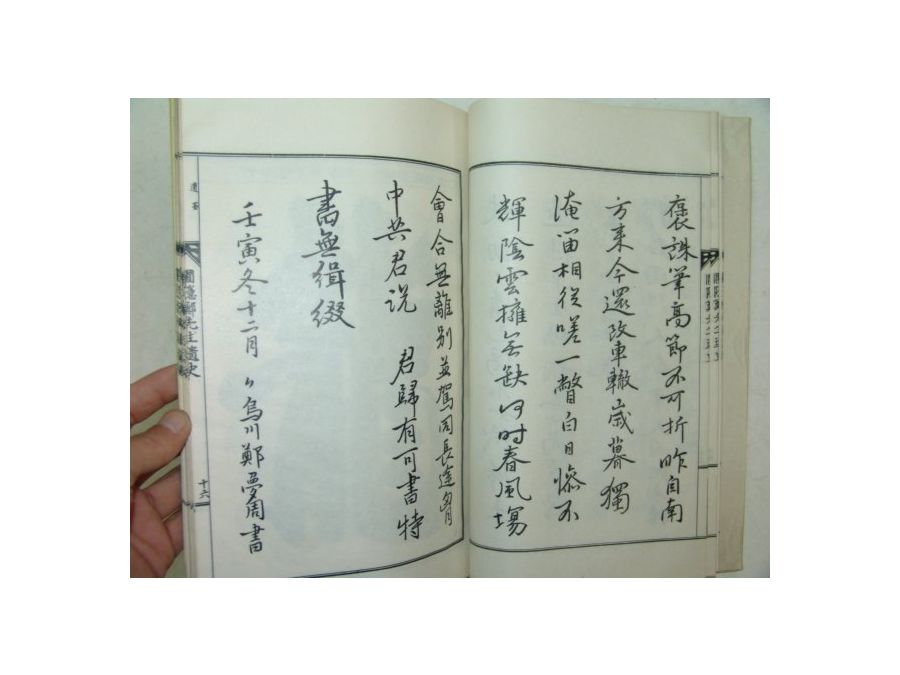 褒誅筆高節不可折昨自南
方来今還改車轍歲暮獨
淹留相從嗟一瞥白日惨不
輝陰雲擁無缺何时春風場
會合無離別並駕同長途
中共君说 君歸有可書特
書無緝綴
壬寅冬十二月 烏川鄭夢周書
圃隱鄭先生遺史
十六